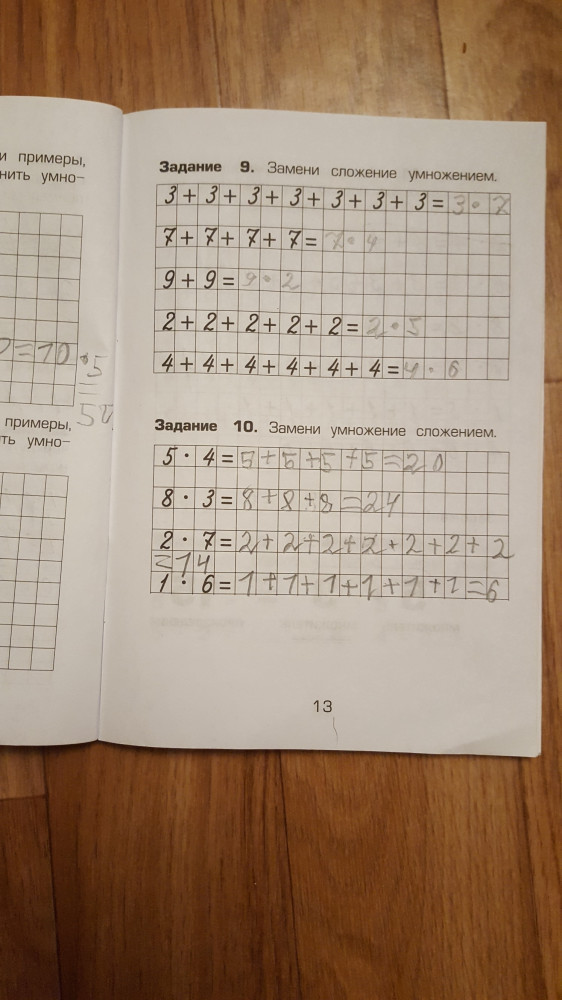 и примеры,
нить умно-
=10·5
=
5
примеры,
ть умно-
Задание 9. Замени сложение умножением.
3+3+3+3+3+3+3=3·7
7+7+7+7=7·4
9+9=9·2
2+2+2+2+2=2·5
4+4+4+4+4+4=4·6
Задание 10. Замени умножение сложением.
5·4=5+5+5+5=20
8·3=8+8+8=24
2·7=2+2+2+2+2+2+2
=14
1·6=1+1+1+1+1+1=6
13